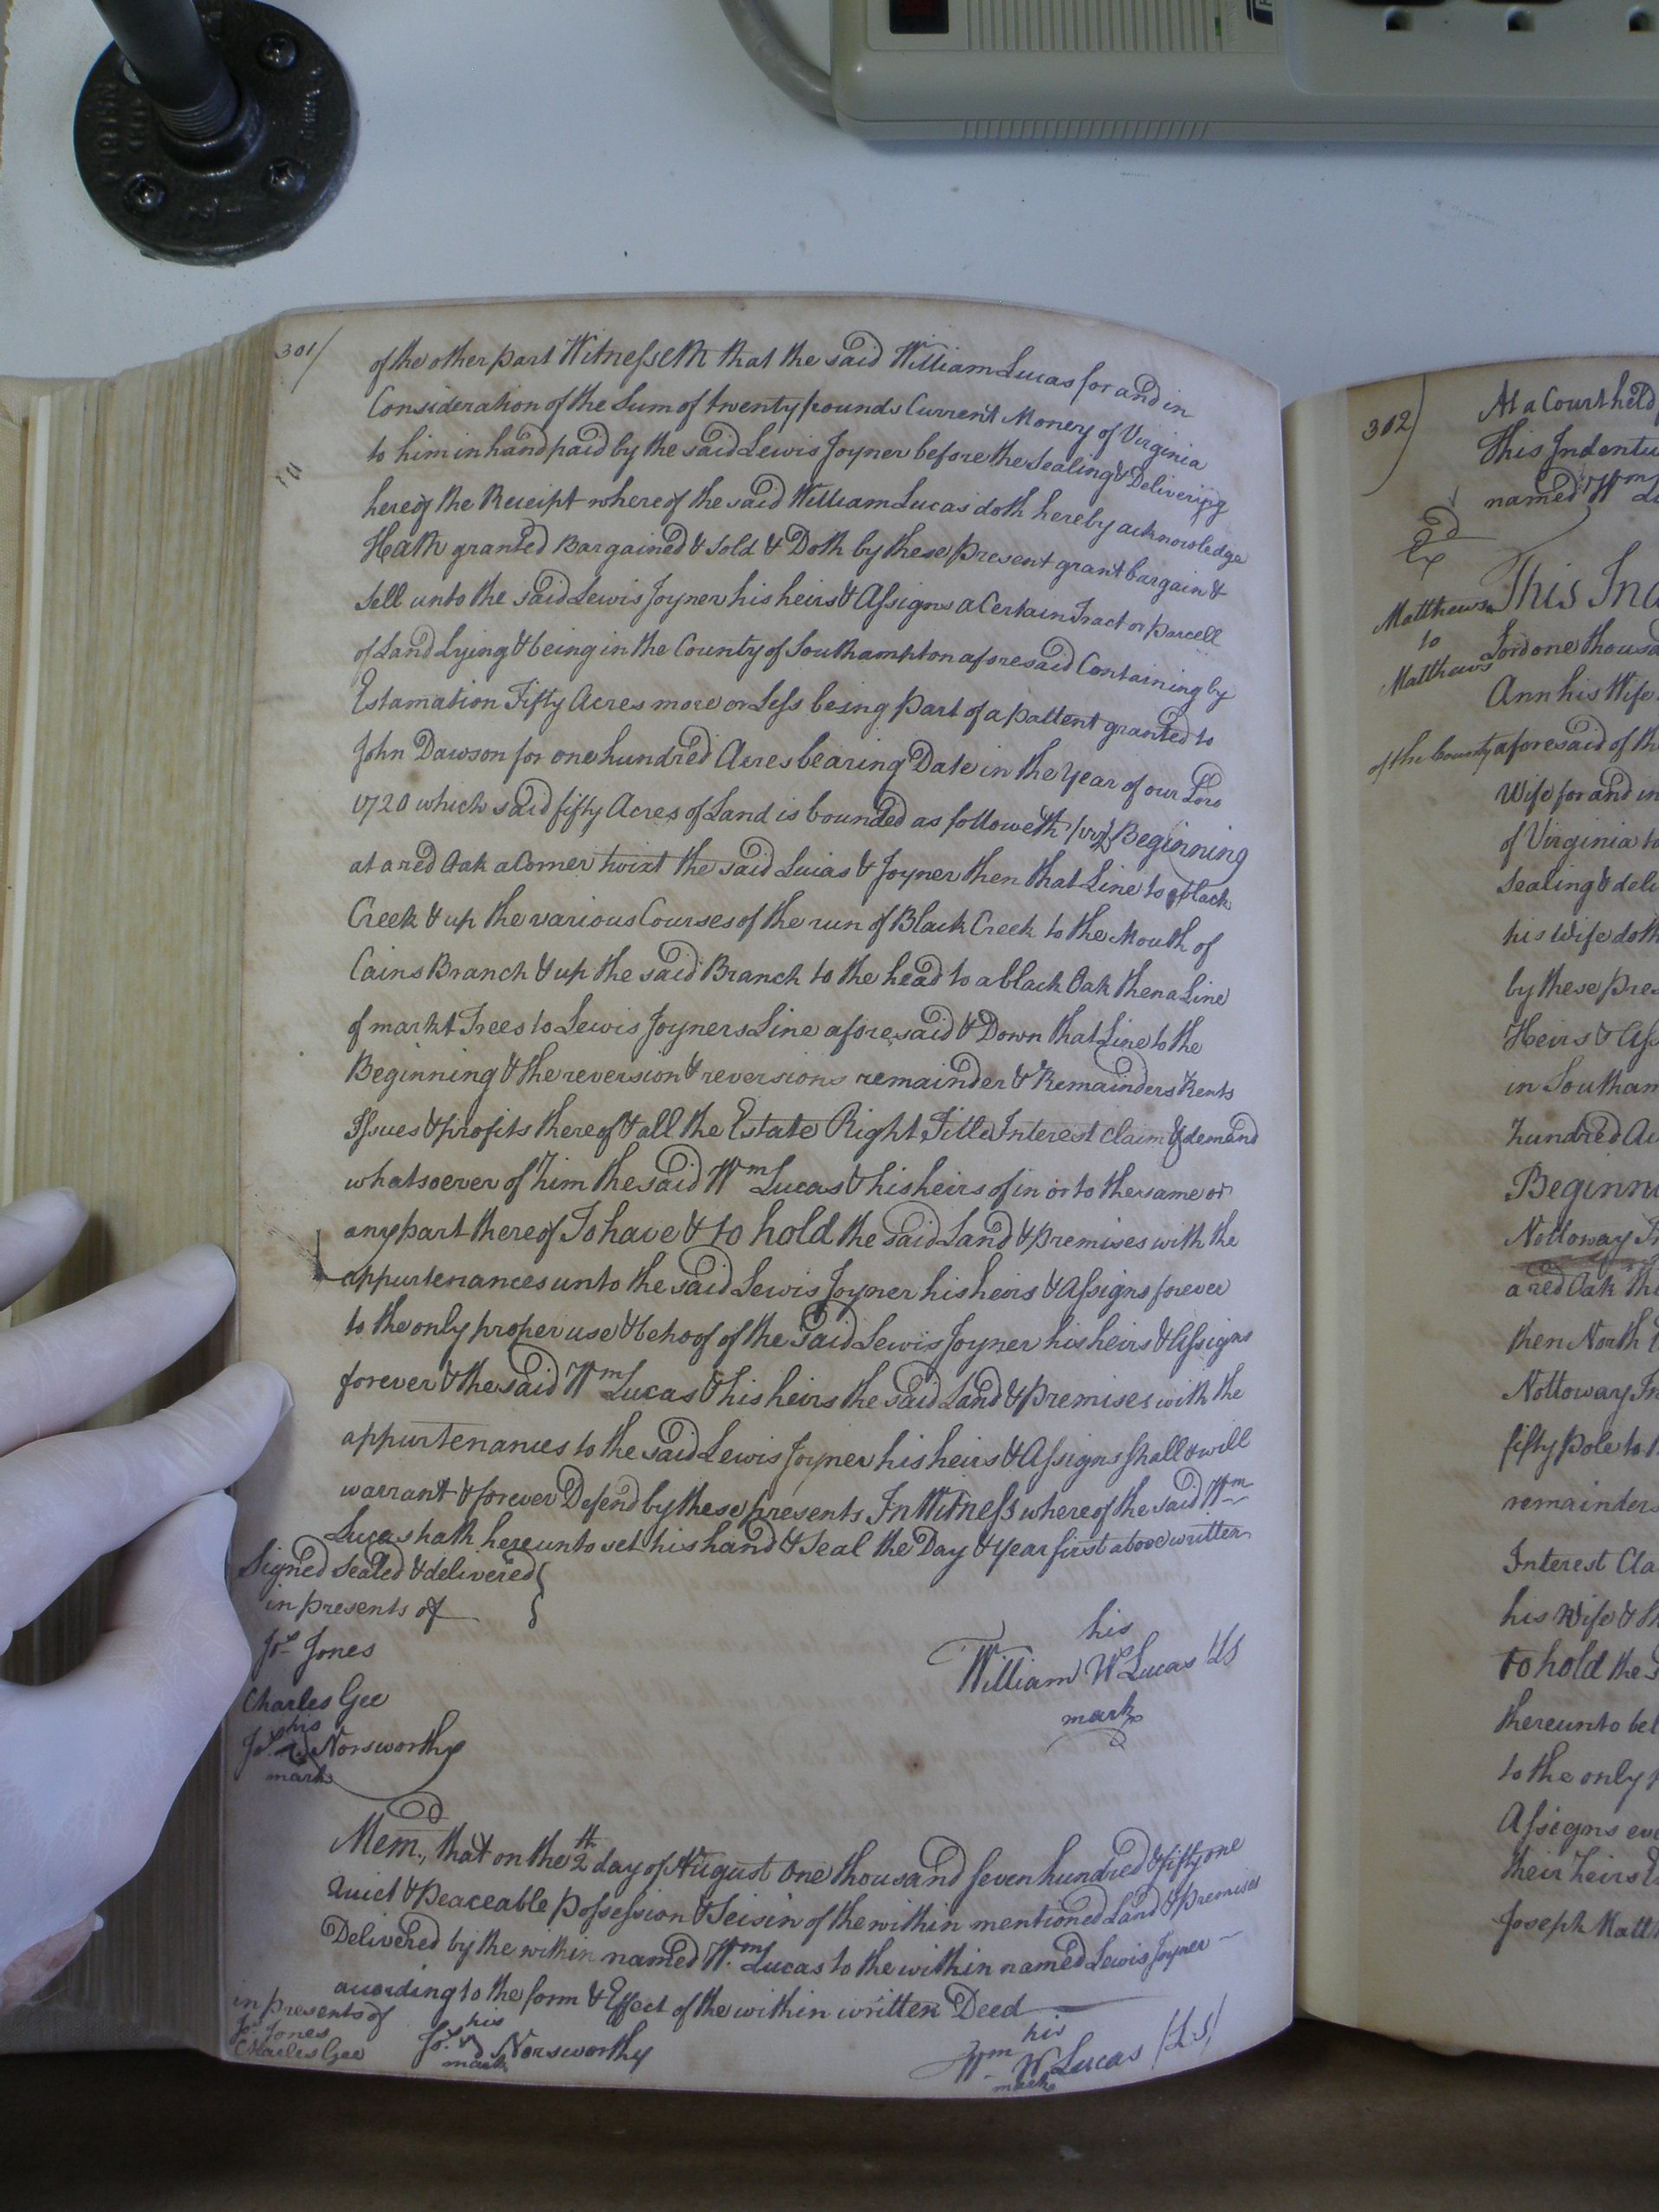 301/
of the other part Witnesseth that the said William Lucas for and in
Consideration of the Sum of twenty pounds Current Money of Virginia
to him in hand paid by the said Lewis Joyner before the Sealing & Delivering
hereof the Receipt whereof the said William Lucas doth hereby acknowledge
Hath granted Bargained & Sold & Doth by these present grant bargain &
Sell unto the said Lewis Joyner his heirs & Assigns a Certain Tract or parcell
of Land Lying & being in the County of Southampton aforesaid Containing by
Estamation Fifty Acres more or Less being part of a pattent granted to
John Dawson for one hundred Acres bearing Date in the Year of our Lord
1720 which said fifty Acres of Land is bounded as followeth (viz) Beginning
at a red Oak a Corner twixt the said Lucas & Joyner then that Line to black
Creek & up the various Courses of the run of Black Creek to the Mouth of
Cains Branch & up the said Branch to the head to a black Oak then a Line
of markt Trees to Lewis Joyners Line aforesaid & Down that Line to the
Beginning & the reversion & reversions remainder & Remainders Rents
Issues & profits thereof & all the Estate Right Title Interest claim & demand
whatsoever of him the said Wm Lucas & his heirs of in or to the same or
any part thereof To have & to hold the said Land & premises with the
appurtenances unto the said Lewis Joyner his heirs & Assigns forever
to the only proper use & behoof of the said Lewis Joyner his heirs & Assigns
forever & the said Wm Lucas & his heirs the said Land & premises with the
appurtenances to the said Lewis Joyner his heirs & Assigns shall & will
warrant & forever Defend by these presents In Witness whereof the said Wm
Lucas hath hereunto set his hand & Seal the Day & Year first above written
Signed Sealed & delivered
in presents of
Jos. Jones
Charles Gee
his
Jos. Norsworthy
mark
his
William W Lucas LS
mark
Mem., that on the 2th day of August One thousand Seven hundred & fifty one
Quiet & Peaceable possession & Seisin of the within mentioned Land & premises
Delivered by the within named Wm. Lucas to the within named Lewis Joyner
according to the form & Effect of the within written Deed
in presents of
Jos. Jones
Charles Gee
his
Jos. Norsworthy
mark
his
Wm W Lucas (L.S)
mark
302)
At a Court held
This Indentu
named Wm
Ex
Matthews
to
Matthews
This Ind
Lord one thousa
Ann his Wife
of the County aforesaid of th
Wife for and in
of Virginia to
Sealing & deli
his Wife doth
by these pres
Heirs & Ass
in Southam
hundred Ac
Beginni
Nottoway
a red Oak the
then North
Nottoway In
fifty pole to
remainders
Interest Cla
his Wife &
to hold the
thereunto bel
to the only
Assigns eve
their heirs
Joseph Matth